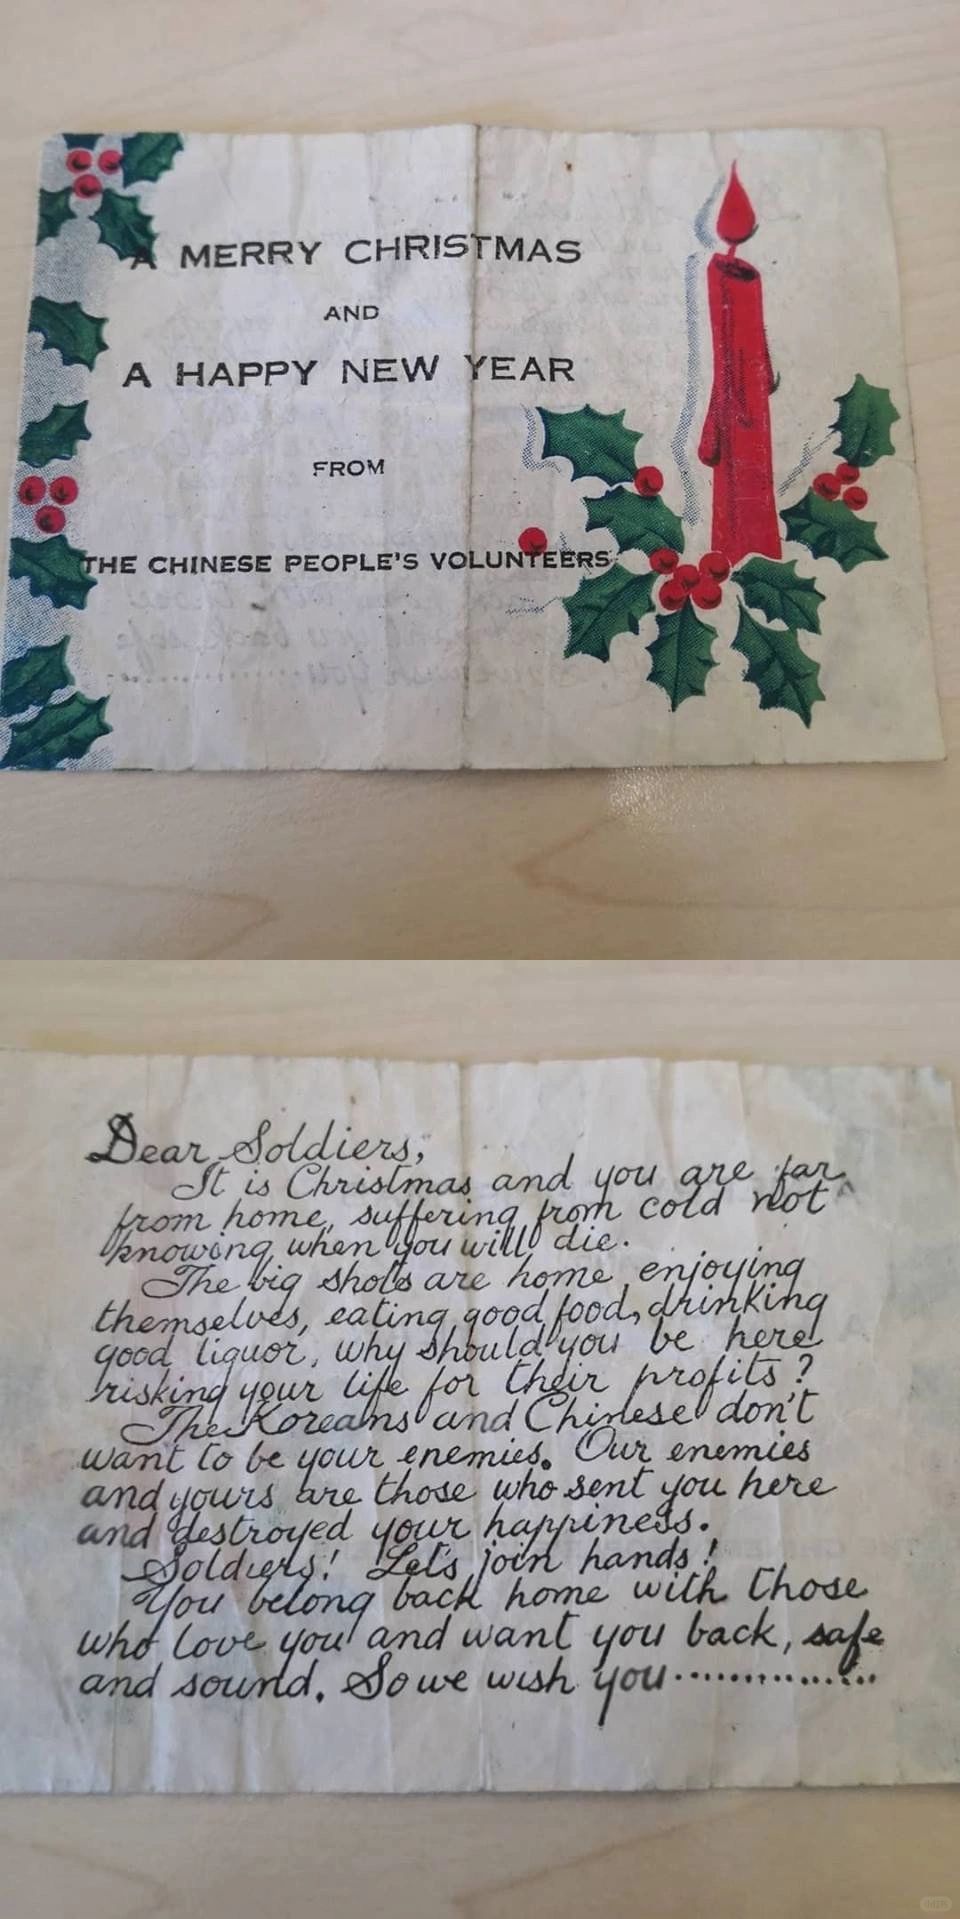 A MERRY CHRISTMAS
AND
A HAPPY NEW YEAR
FROM
THE CHINESE PEOPLE'S VOLUNTEERS
Dear Soldiers,
It is Christmas and you are far
from home, suffering from cold not
knowing when you will die.
The big shots are home enjoying
themselves, eating good food, drinking
good liquor, why should you be here
risking your life for their profits?
The Koreans and Chinese don't
want to be your enemies. Our enemies
and yours are those who sent you here
and destroyed your happiness.
Soldiers! Let's join hands!
You belong back home with those
who love you and want you back, safe
and sound. So we wish you...............